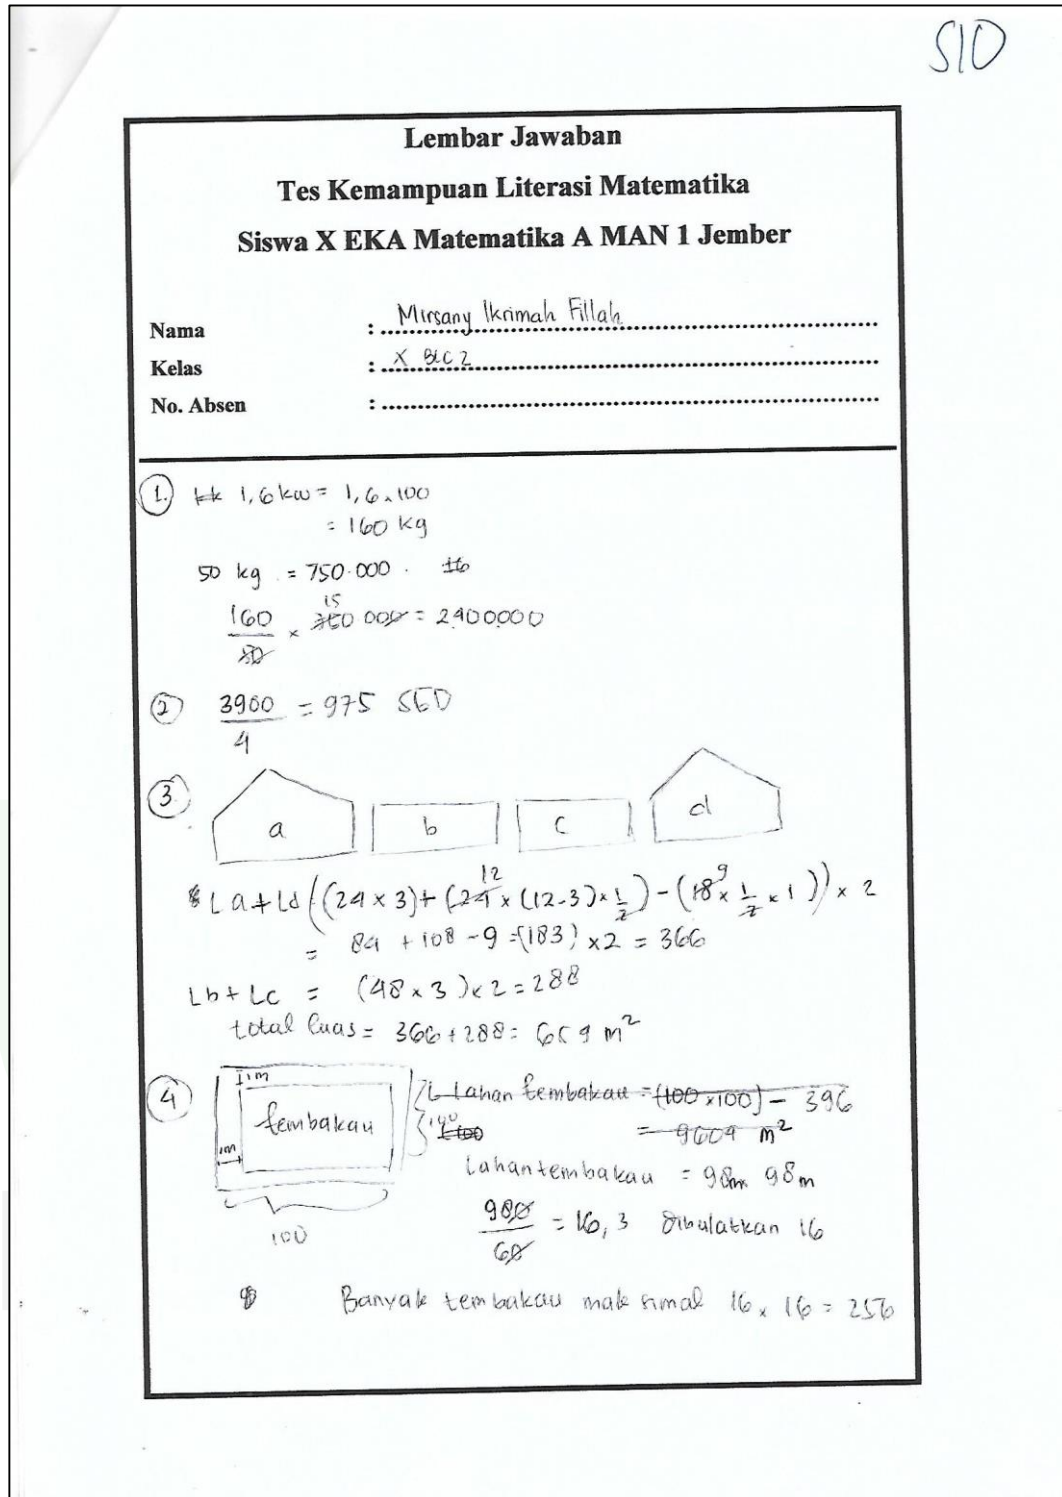 S10
Lembar Jawaban
Tes Kemampuan Literasi Matematika
Siswa X EKA Matematika A MAN 1 Jember
Nama : Mirsany Ikrimah Fillah
Kelas : X BLC 2
No. Absen :
1. 1,6 kw = 1,6 x 100
= 160 kg
50 kg = 750.000.
15
160/50 x 750 000 = 2400000
2 3900/4 = 975 SED
3.
a b c d
La + Ld ((24 x 3) + (24 12 x (12-3) x 1/2) - (18 9 x 1/2 x 1)) x 2
= 84 + 108 - 9 = (183) x 2 = 366
Lb + Lc = (48 x 3) x 2 = 288
total luas = 366 + 288 = 654 m²
4 1m
L lahan tembakau = (100 x 100) - 396
tembakau
= 9604 m²
1m
Lahan tembakau = 98m 98m
100
980/60 = 16,3 dibulatkan 16
Banyak tembakau maksimal 16 x 16 = 256